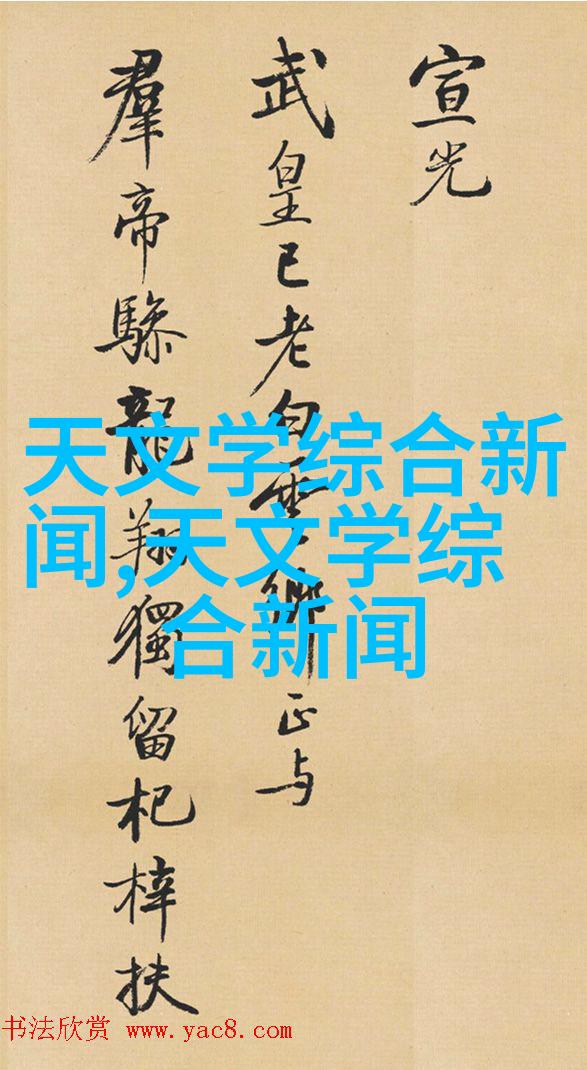 宣光
武皇已老白雲鄉正与
羣帝驂龍翔獨留杞梓扶
天文学综合新
闻,天文学综
合新闻
书法欣赏 www.yac8.com